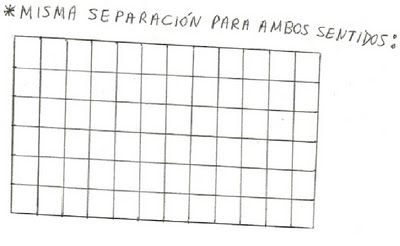 *MISMA SEPARACIÓN PARA AMBOS SENTIDOS: